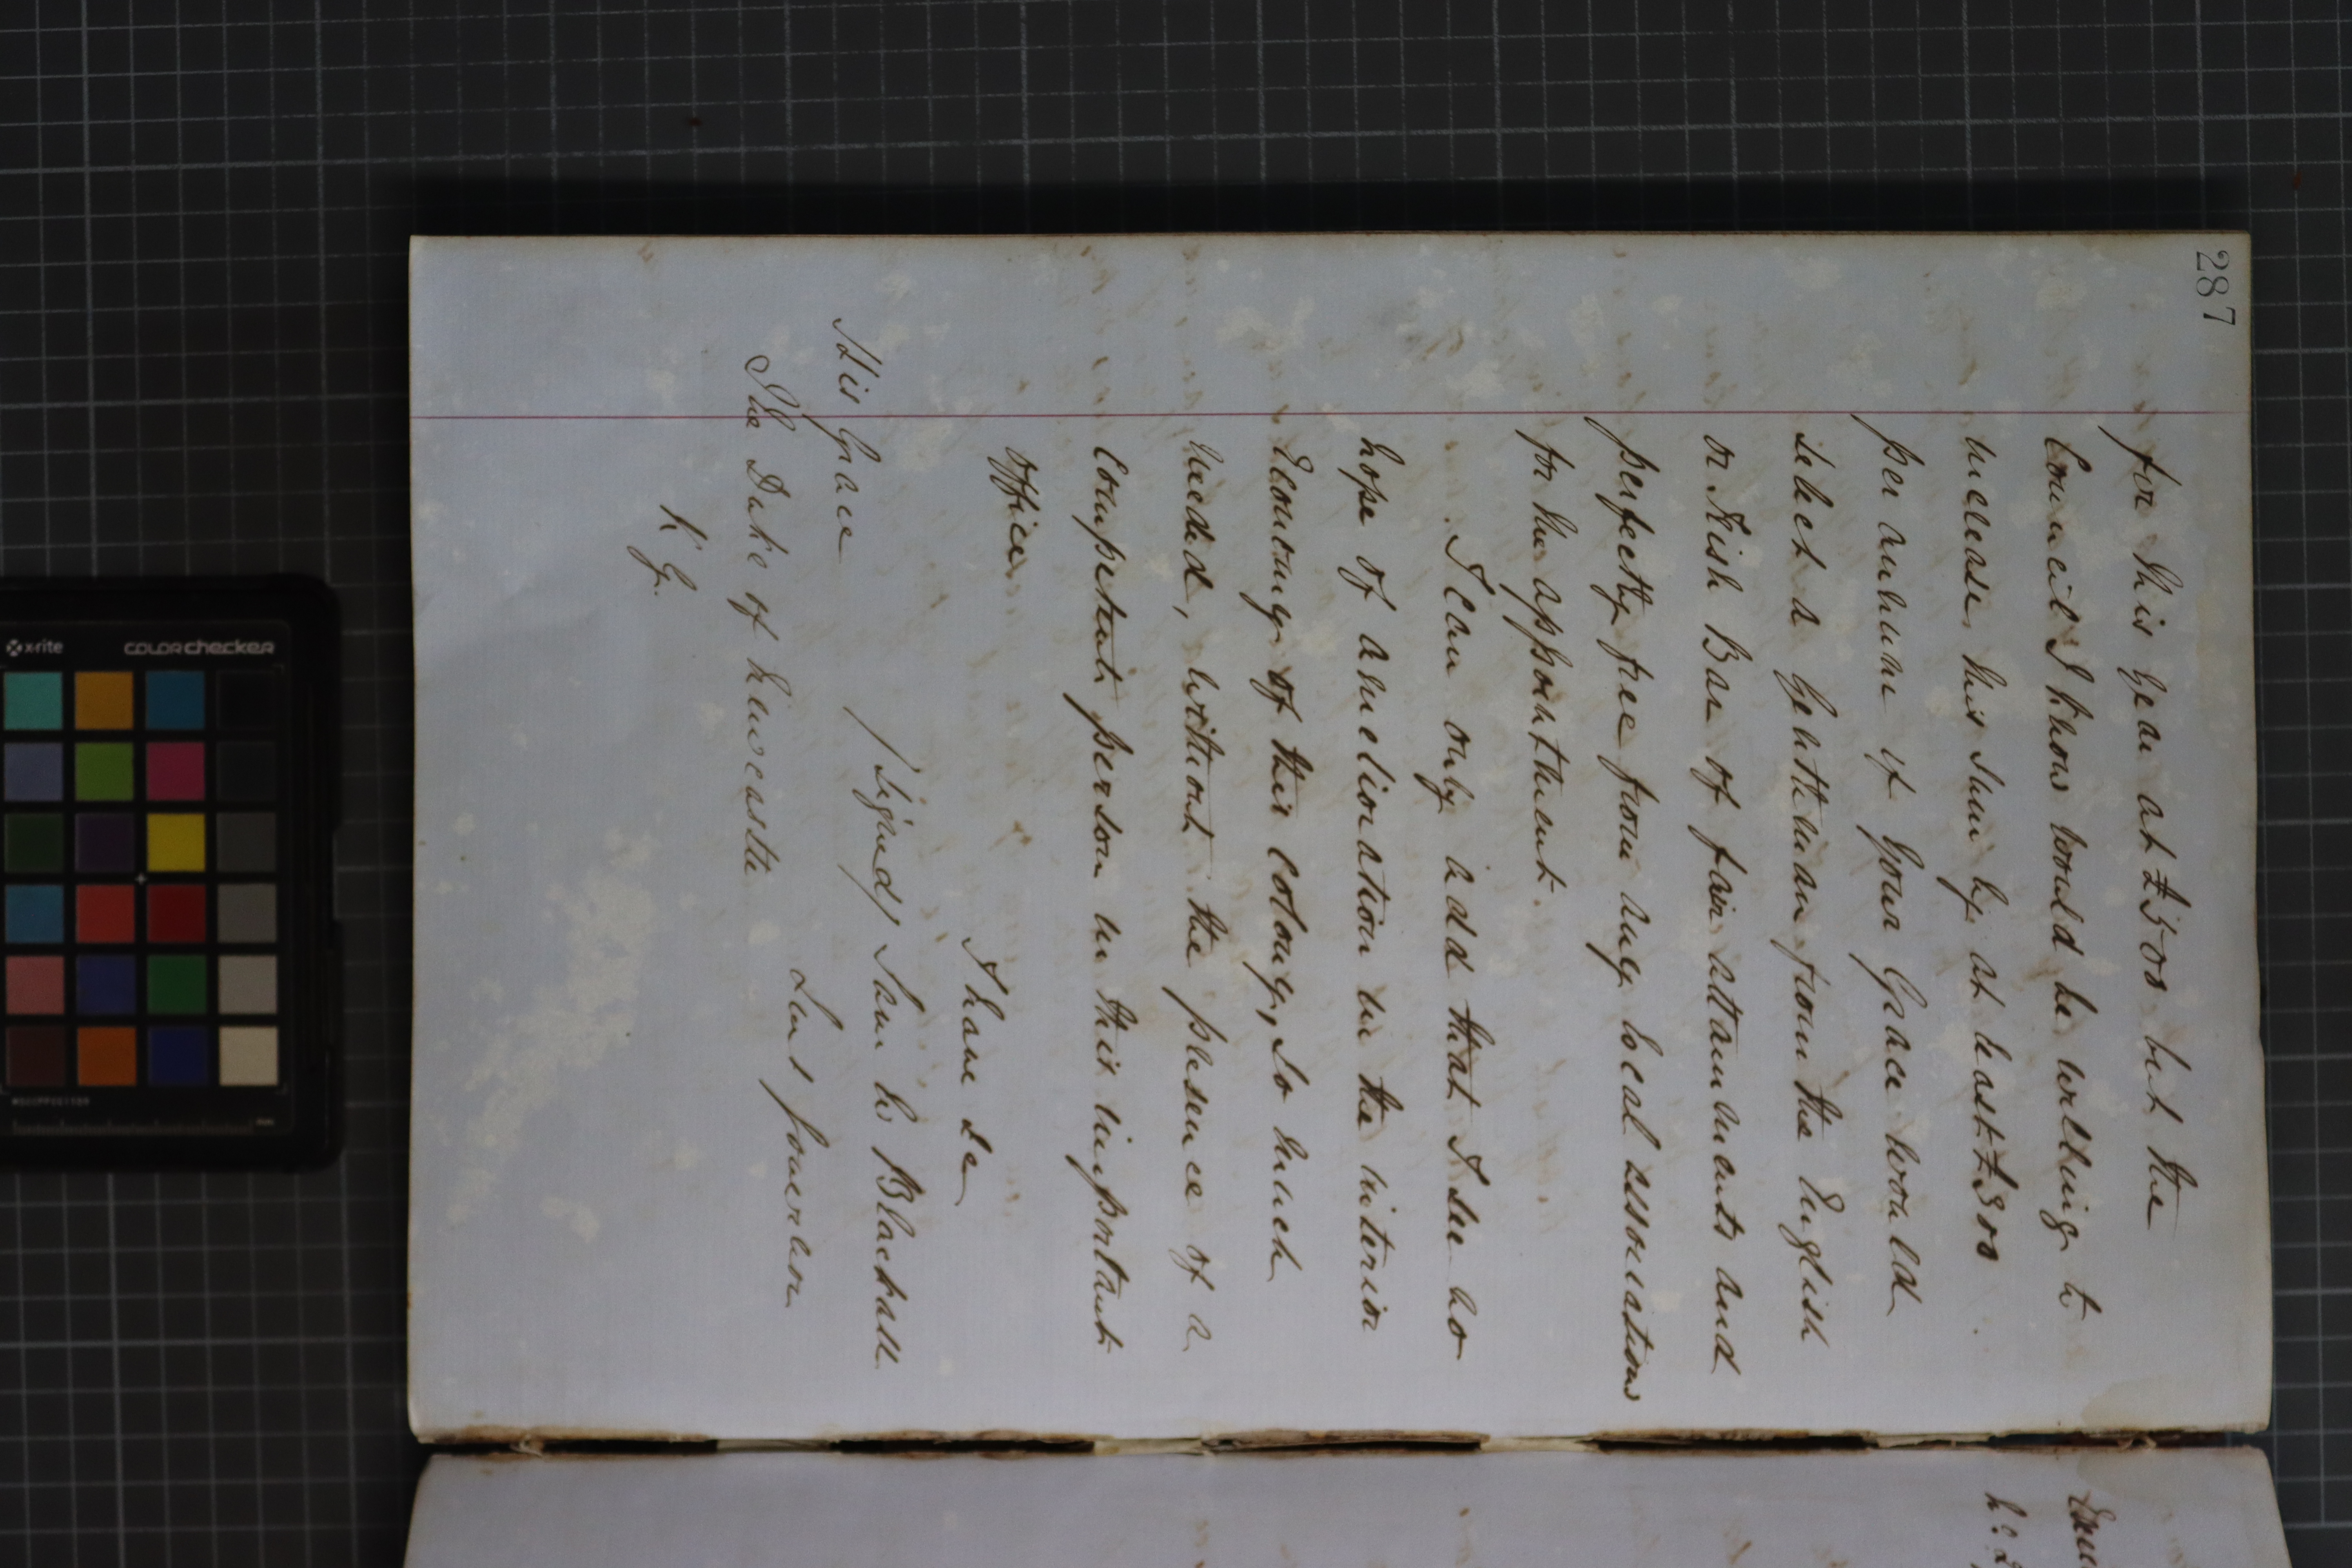 287
for this year at £500 but the
Council I know would be willing to
increase this sum by at least £300
per annum if Your Grace would
select a Gentleman from the English
or Irish Bar of fair attainments and
perfectly free from any local associations
for the appointment.
I can only add that I see no
hope of amelioration in the interior
Economy of this colony, so much
needed, without the presence of a
Competent person in this important
office.
I have &c
(Signed) Sam W Blackall
Lieut Governor
His Grace
The Duke of Newcastle
K.G.
x-rite
colorchecker